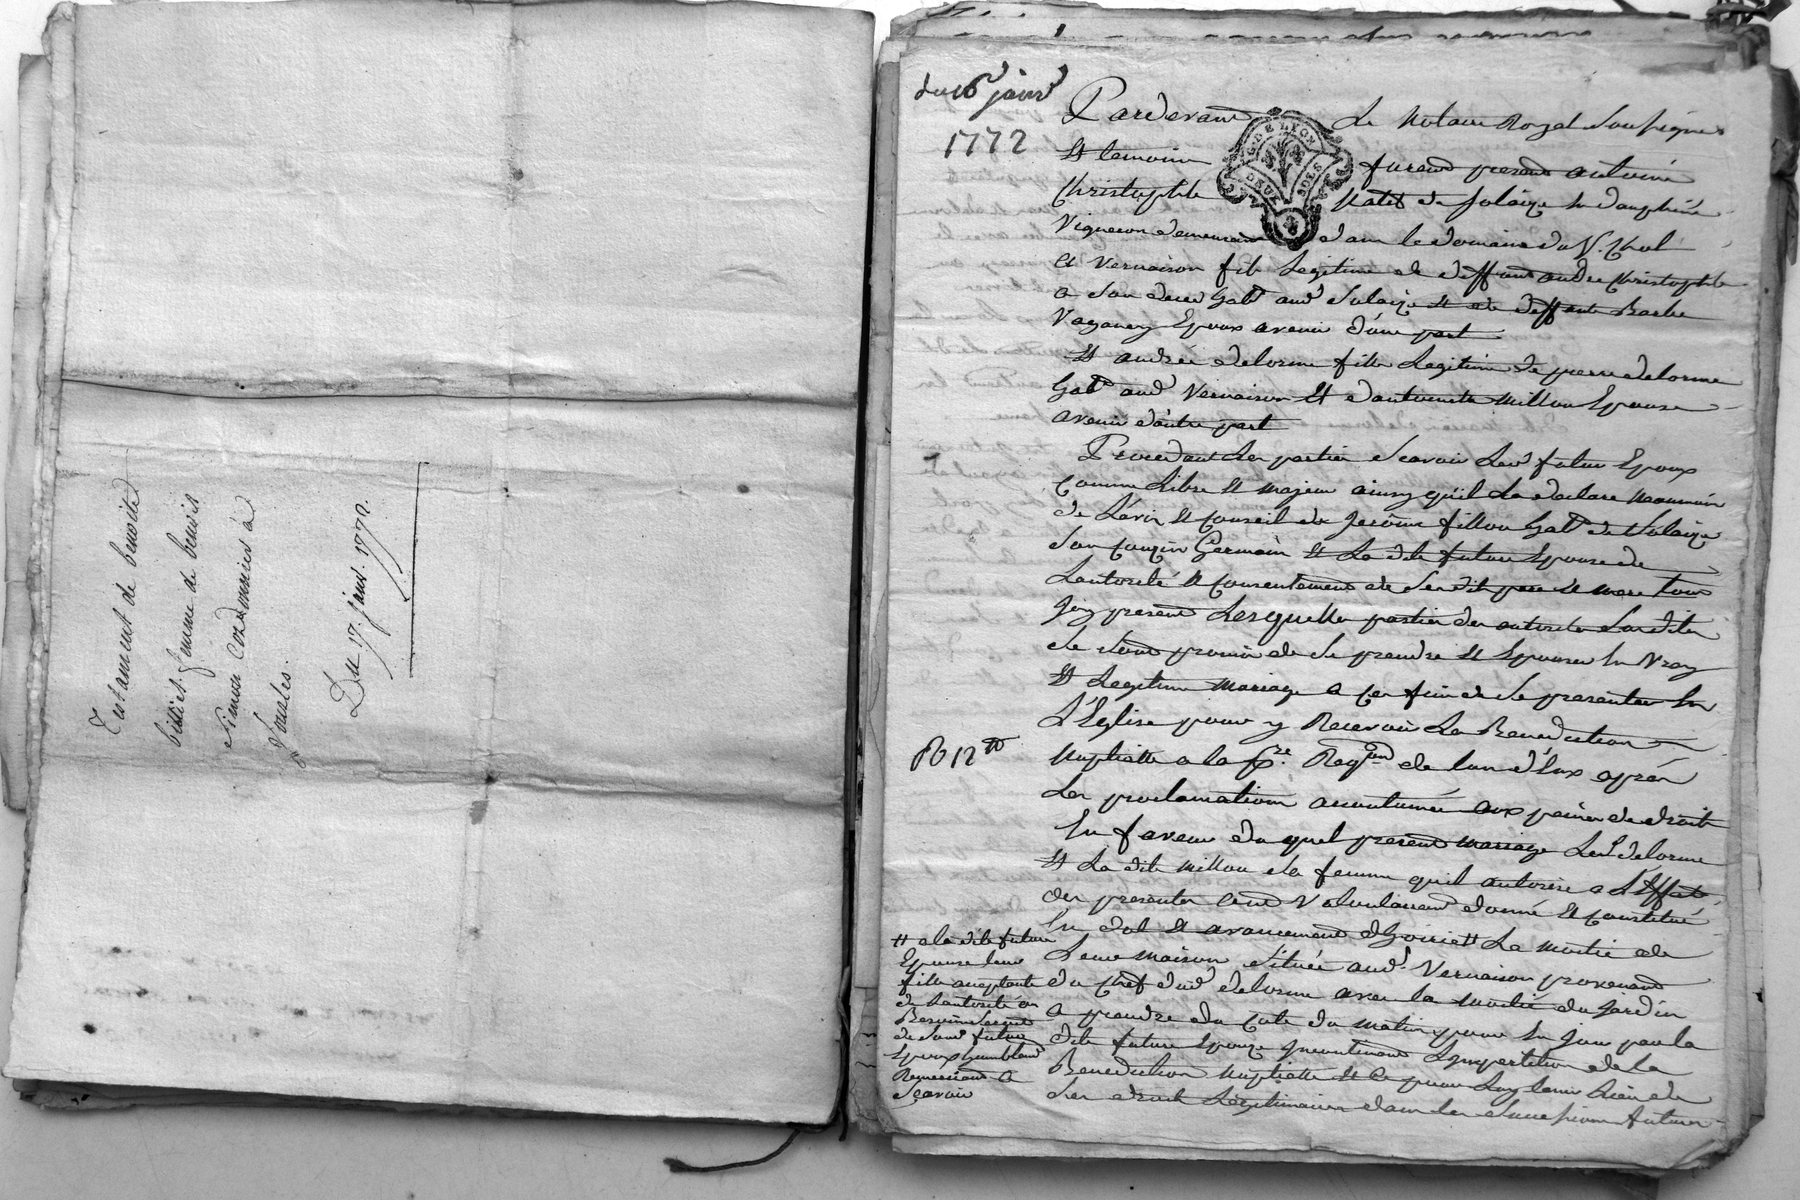 Testament de benoite
billiet femme de benoit
Simon Cordonnier à
Vourles.
Du 17. janv. 1772.
du 16 janvr
1772
Pardevant Le Notaire Royal Soussigné
G. DE LYON
DEUX SOLS
Et temoins furent presens antoine
Christophle Natif de Solaize En dauphiné
Vigneron demeurant dans le domaine du Sr. Chol
a Vernaison fils Legitime de deffunt andré Christophle
a son deces habt aud Solaize et de deffunte
Epoux avenir d'une part
Et andrée delorme fille Legitime de pierre delorme
habt aud Vernaison Et d'antoinette Millon Epouse
avenir d'autre part
Procedant Les parties Scavoir Led futur Epoux
Comme Libre et majeur ainsy qu'il La declare neanmoins
de L'avis et Conseil de Jerôme fillon habt de Solaize
Son Couzin Germain Et La dite future Epouse de
Lautorité et Consentement de Sesdits pere et mere tous
Icy presens Lesquelles parties des autorités Susdites
Se Sont promis de Se prendre et Epouser En Vray
Et Legitime mariage a Ces fins de Se presenter En
L'Eglise pour y Recevoir La Benediction
Nuptialle a la pre. Reqon de l'un d'Eux aprés
Les proclamations accoutumées aux peines de droit
R 12 tt
En faveur du quel present mariage Led delorme
Et La dite Millon Sa femme qu'il autorise a L'Effet
des presentes ont Volontairement donné et Constitué
En dot et avancement d'hoirie # La moitié de
Leur maison Située aud. Vernaison provenant
du Chef dud delorme avec la moitié du Jardin
a prendre du Coté du matin pour En Jouir par la
dite future Epouze Incontinent de la
Benediction nuptialle et Ce pour Luy tenir Lieu de
Ses droits Légitimaires dans les Successions futures
# a la dite future
Epouse leur
fille acceptante
de Lautorité
de Son futur
Epoux humblement
Remerciant a
Scavoir